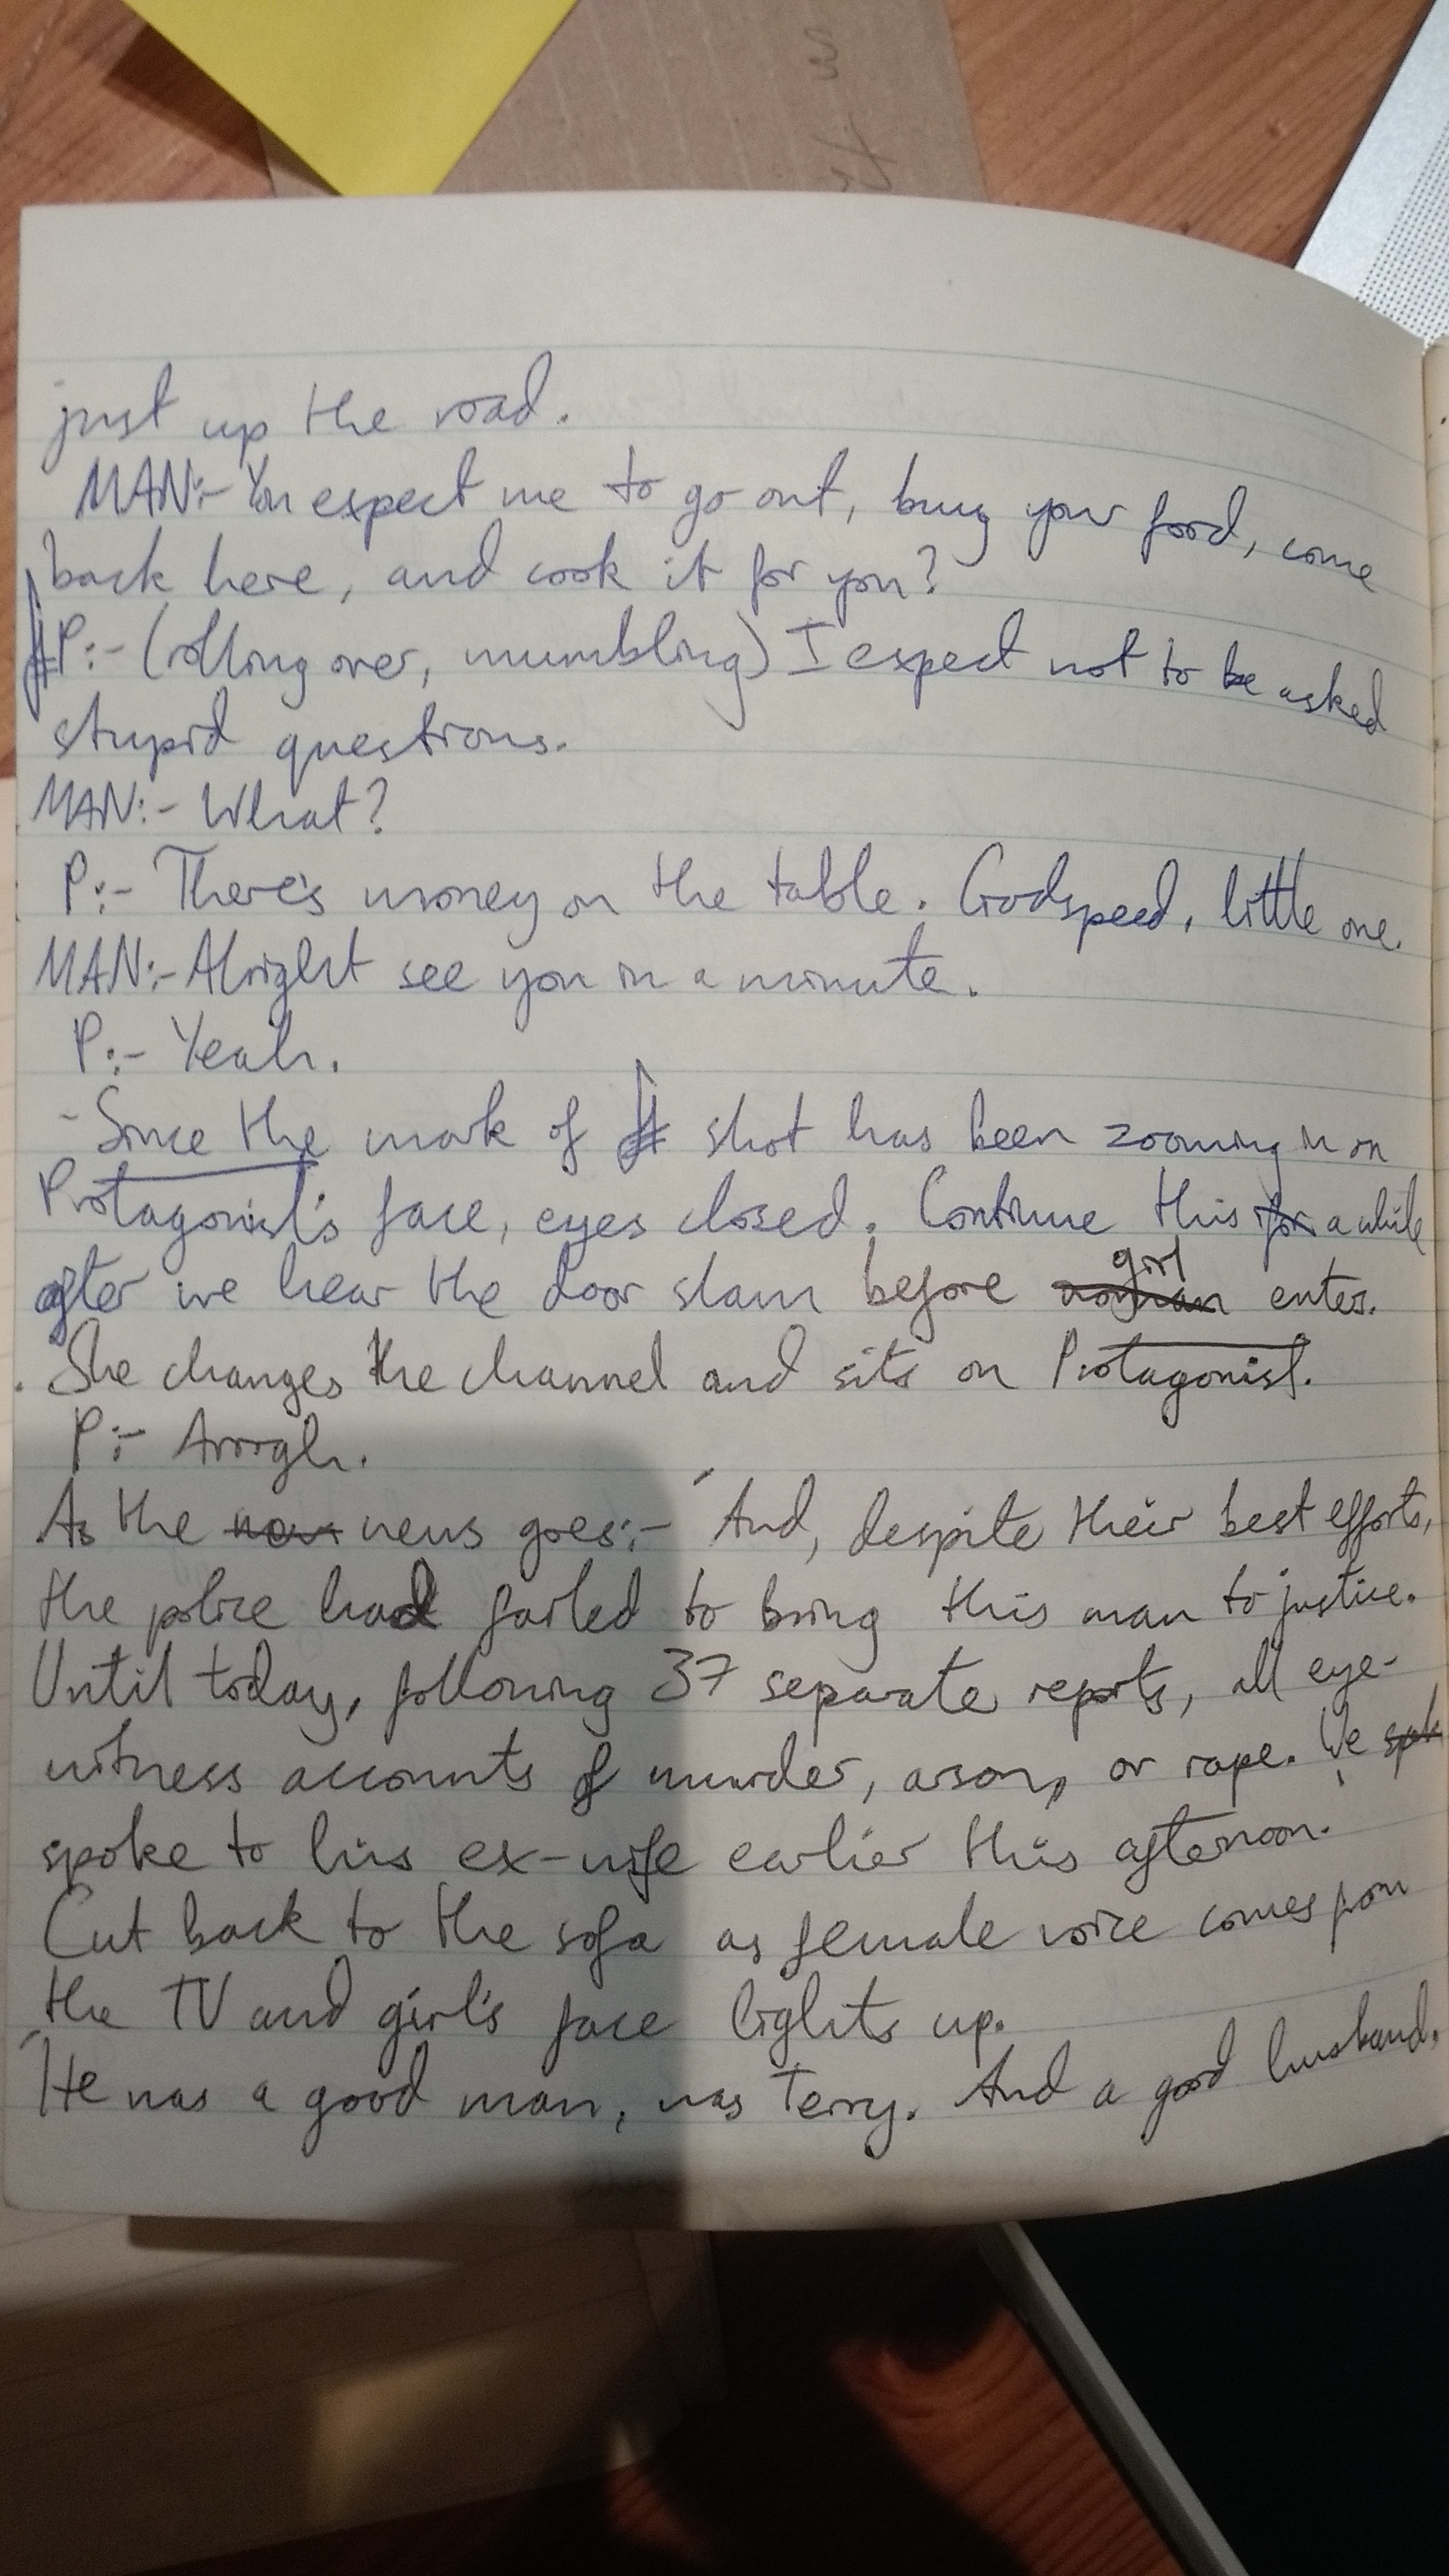 just up the road.
MAN:- You expect me to go out, buy your food, come
back here, and cook it for you?
P:- (rolling over, mumbling) I expect not to be asked
stupid questions.
MAN:- What?
P:- There's money on the table. Godspeed, little one.
MAN:- Alright see you in a minute.
P:- Yeah.
- Since the mark of # shot has been zooming in on
Protagonist's face, eyes closed. Continue this for a while
after we hear the door slam before woman girl enter.
She changes the channel and sits on Protagonist.
P:- Arrrgh.
As the new news goes:- 'And, despite their best efforts,
the police had failed to bring this man to justice.
Until today, following 37 separate reports, all eye-
witness accounts of murder, arson, or rape. We spok
spoke to his ex-wife earlier this afternoon.'
Cut back to the sofa as female voice comes from
the TV and girl's face lights up.
'He was a good man, was Terry. And a good husband.